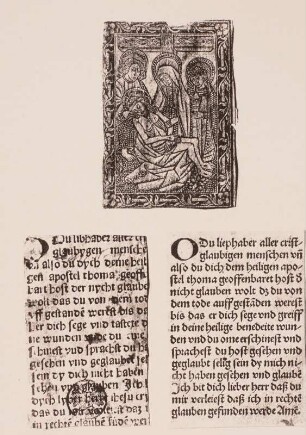 Du libhaber aller
glaubygen mensche
vñ also du dych deme heyli
gen apostel thoma geoffn
bart host der nycht glaub
wolt das du von dem tode
uff gestāde werest bis
er dich sege und tastete
ne wunden
schynest und sprachst du
gesehen und geglaubt
en dy dich nicht haben
sehen und glaube Ich
dych lyber herr
du myr
in rechte glaube fūdē
O Du liephaber aller crist
glaubigen menschen vñ
also du dich dem heiligen apo
stel thoma geoffenbaret host d
nicht glauben wolt dz du von
dem tode auff gestāden werest
bis das er dich sege vnd greiff
in deine heilige benedeite wun
den vnd du ome erschinest vnd
sprachest du host gesehen vnd
geglaubet selig sein dy mich nich
cht haben gesehen vnd glaubē
Ich bit dich lieber herr daß du
mir verleiest daß ich in rechtē
glauben gefunden werde Amē.